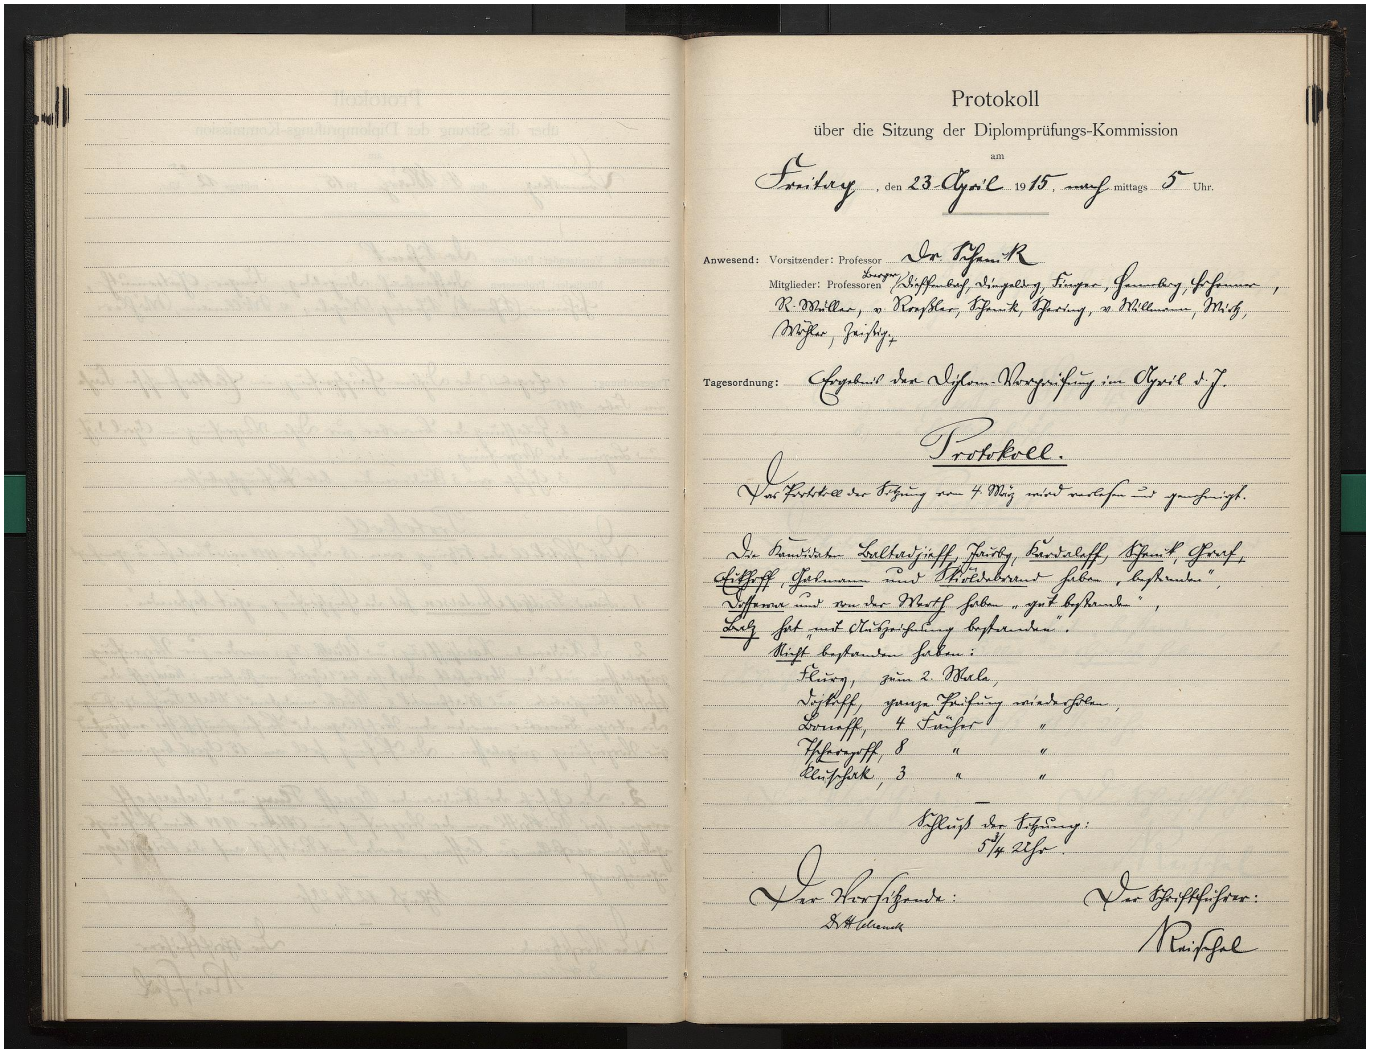 Protokoll
über die Sitzung der Diplomprüfungs-Kommission
am
Freitag, den 23 April 1915, nach mittags 5 Uhr.
Anwesend: Vorsitzender: Professor Dr. Schenk
Berger,
Mitglieder: Professoren Dieffenbach, Dingeldey, Finger, Henneberg, Hohenner,
R. Müller, v. Roeßler, Schenk, Schering, v Willmann, Wirtz,
Wöhler, Zeissig.
Tagesordnung: Ergebnis der Diplom-Vorprüfung im April d. J.
Protokoll.
Das Protokoll der Sitzung vom 4. März wird verlesen und genehmigt.
Die Kandidaten Baltadjieff, Kardaleff, Schenk, Graf,
Eikhoff, Gasmann und Skiöldebrand haben „bestanden",
und von der Werth haben „gut bestanden",
Balz hat „mit Auszeichnung bestanden".
Nicht bestanden haben:
Flury, zum 2. Male,
Dojkoff, ganze Prüfung wiederholen,
Boneff, 4 Fächer "
Tscheregoff, 8 " "
Kluschak, 3 " "
Schluß der Sitzung:
5 3/4 Uhr.
Der Vorsitzende: Der Schriftführer:
Dr H Schenck
Reischel